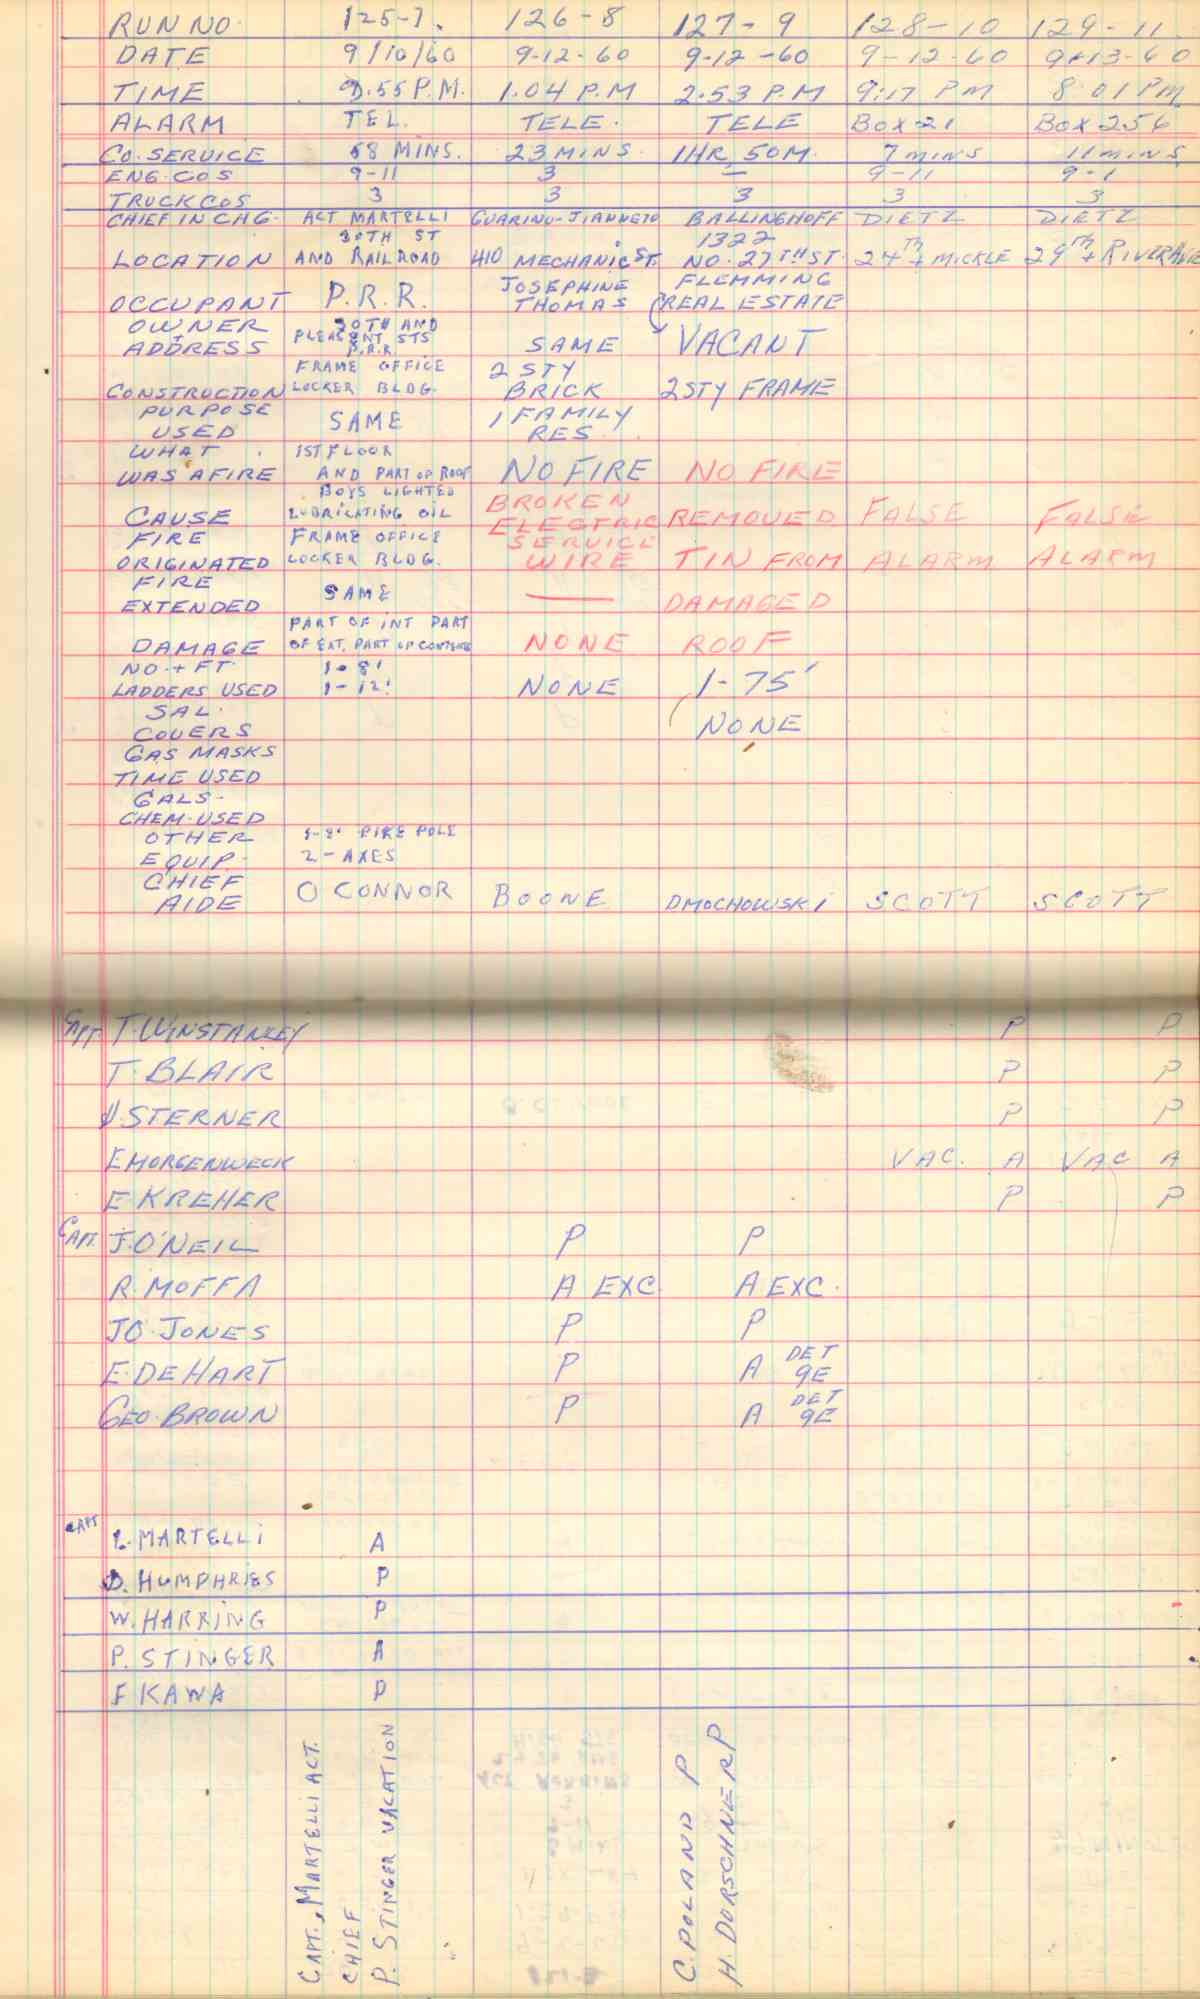 RUN NO. 125-7. 126-8 127-9 128-10 129-11
DATE 9/10/60 9-12-60 9-12-60 9-12-60 9-13-60
TIME 55 P.M. 1.04 P.M 2.53 P.M 9:17 PM 8:01 PM
ALARM TEL. TELE. TELE BOX 21 BOX 256
CO. SERVICE 58 MINS. 23 MINS. 1HR 50M. 7 MINS 11 MINS
ENG. COS 9-11 3 — 9-11 9-1
TRUCK COS 3 3 3 3 3
CHIEF IN CHG. ACT MARTELLI GUARINO-JIANNETO BALLINGHOFF DIETZ DIETZ
30TH ST 1322
LOCATION AND RAILROAD 410 MECHANIC ST. NO. 27TH ST. 24TH + MICKLE 29TH + RIVER AVE
JOSEPHINE FLEMMING
OCCUPANT P.R.R. THOMAS (REAL ESTATE
OWNER 30TH AND
PLEASENT STS
ADDRESS P.R.R. SAME VACANT
FRAME OFFICE 2 STY
CONSTRUCTION LOCKER BLDG. BRICK 2 STY FRAME
PURPOSE 1 FAMILY
USED SAME RES.
WHAT 1ST FLOOR
WAS AFIRE AND PART OF ROOF NO FIRE NO FIRE
BOYS LIGHTED BROKEN
CAUSE LUBRICATING OIL ELECTRIC REMOVED FALSE FALSE
FIRE FRAME OFFICE SERVICE
ORIGINATED LOCKER BLDG. WIRE TIN FROM ALARM ALARM
FIRE
EXTENDED SAME — DAMAGED
PART OF INT PART
DAMAGE OF EXT. PART OF CONTENTS NONE ROOF
NO. + FT. 1-8'
LADDERS USED 1-12' NONE 1-75'
SAL.
COVERS NONE
GAS MASKS
TIME USED
GALS-
CHEM-USED
OTHER 1-8' PIKE POLE
EQUIP. 2-AXES
CHIEF
AIDE O CONNOR BOONE DMOCHOWSKI SCOTT SCOTT
CAPT. T. WINSTANLEY P P
T. BLAIR P P
STERNER P P
E MORGENWECK VAC. A VAC A
E KREHER P P
CAPT. J. O'NEIL P P
R. MOFFA A EXC. A EXC.
JO. JONES P P
E. DEHART P A DET 9E
GEO. BROWN P A DET 9E
CAPT
L. MARTELLI A
D. HUMPHRIES P
W. HARRING P
P. STINGER A
F KAWA P
CAPT., MARTELLI ACT.
CHIEF
P. STINGER VACATION
C. POLAND P
H. DORSCHNER P